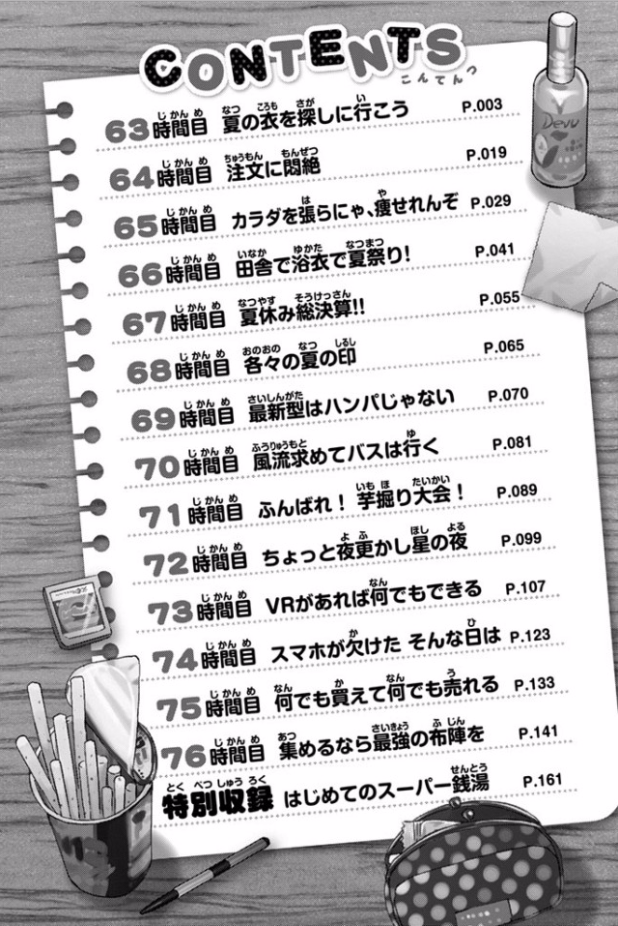 CONTENTS
こんてんつ
63時間目 夏の衣を探しに行こう P.003
64時間目 注文に悶絶 P.019
65時間目 カラダを張らにゃ、痩せれんぞ P.029
66時間目 田舎で浴衣で夏祭り! P.041
67時間目 夏休み総決算!! P.055
68時間目 各々の夏の印 P.065
69時間目 最新型はハンパじゃない P.070
70時間目 風流求めてバスは行く P.081
71時間目 ふんばれ!芋掘り大会! P.089
72時間目 ちょっと夜更かし星の夜 P.099
73時間目 VRがあれば何でもできる P.107
74時間目 スマホが欠けた そんな日は P.123
75時間目 何でも買えて何でも売れる P.133
76時間目 集めるなら最強の布陣を P.141
特別収録 はじめてのスーパー銭湯 P.161
Devu